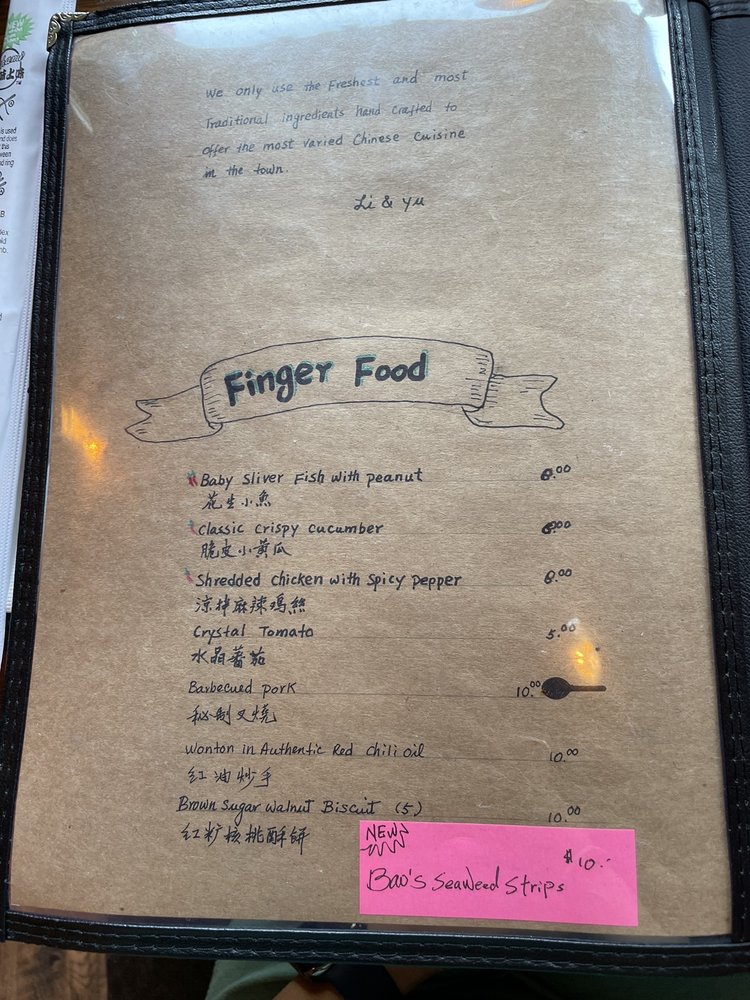 We only use the Freshest and most
Traditional ingredients hand crafted to
offer the most varied Chinese Cuisine
in the town.
Li & Yu
Finger Food
Baby Sliver Fish with peanut
花生小魚
Classic crispy cucumber
脆皮小黄瓜
Shredded chicken with spicy pepper
涼拌麻辣鸡絲
Crystal Tomato 5.00
水晶蕃茄
Barbecued pork 10.00
秘制叉燒
Wonton in Authentic Red Chili oil 10.00
红油炒手
Brown Sugar walnut Biscuit (5) 10.00
核桃酥餅
NEW
$10.-
Bao's Seaweed Strips